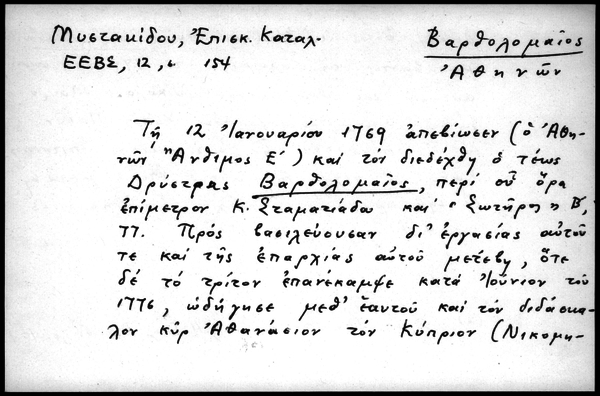 Μυστακίδου, Ἐπισκ. Καταλ.
ΕΕΒΣ, 12, σ. 154
Βαρθολομαῖος
Ἀθηνῶν
Τῇ 12 Ἰανουαρίου 1769 ἀπεβίωσεν (ὁ Ἀθη-
νῶν Ἄνθιμος Ε΄) καὶ τὸν διεδέχθη ὁ τέως
Δρύστρας Βαρθολομαῖος, περὶ οὗ ὅρα
ἐπίμετρον Κ. Σταματιάδου καὶ "Σωτῆρος Β,
77. Πρὸς βασιλεύουσαν δι' ἐργασίας αὐτοῦ
τε καὶ τῆς ἐπαρχίας αὐτοῦ μετέβη, ὅτε
δὲ τὸ τρίτον ἐπανέκαμψε κατὰ Ἰούνιον τοῦ
1776, ὡδήγησε μεθ' ἑαυτοῦ καὶ τὸν διδάσκα-
λον κὺρ Ἀθανάσιον τὸν Κύπριον (Νικομη-